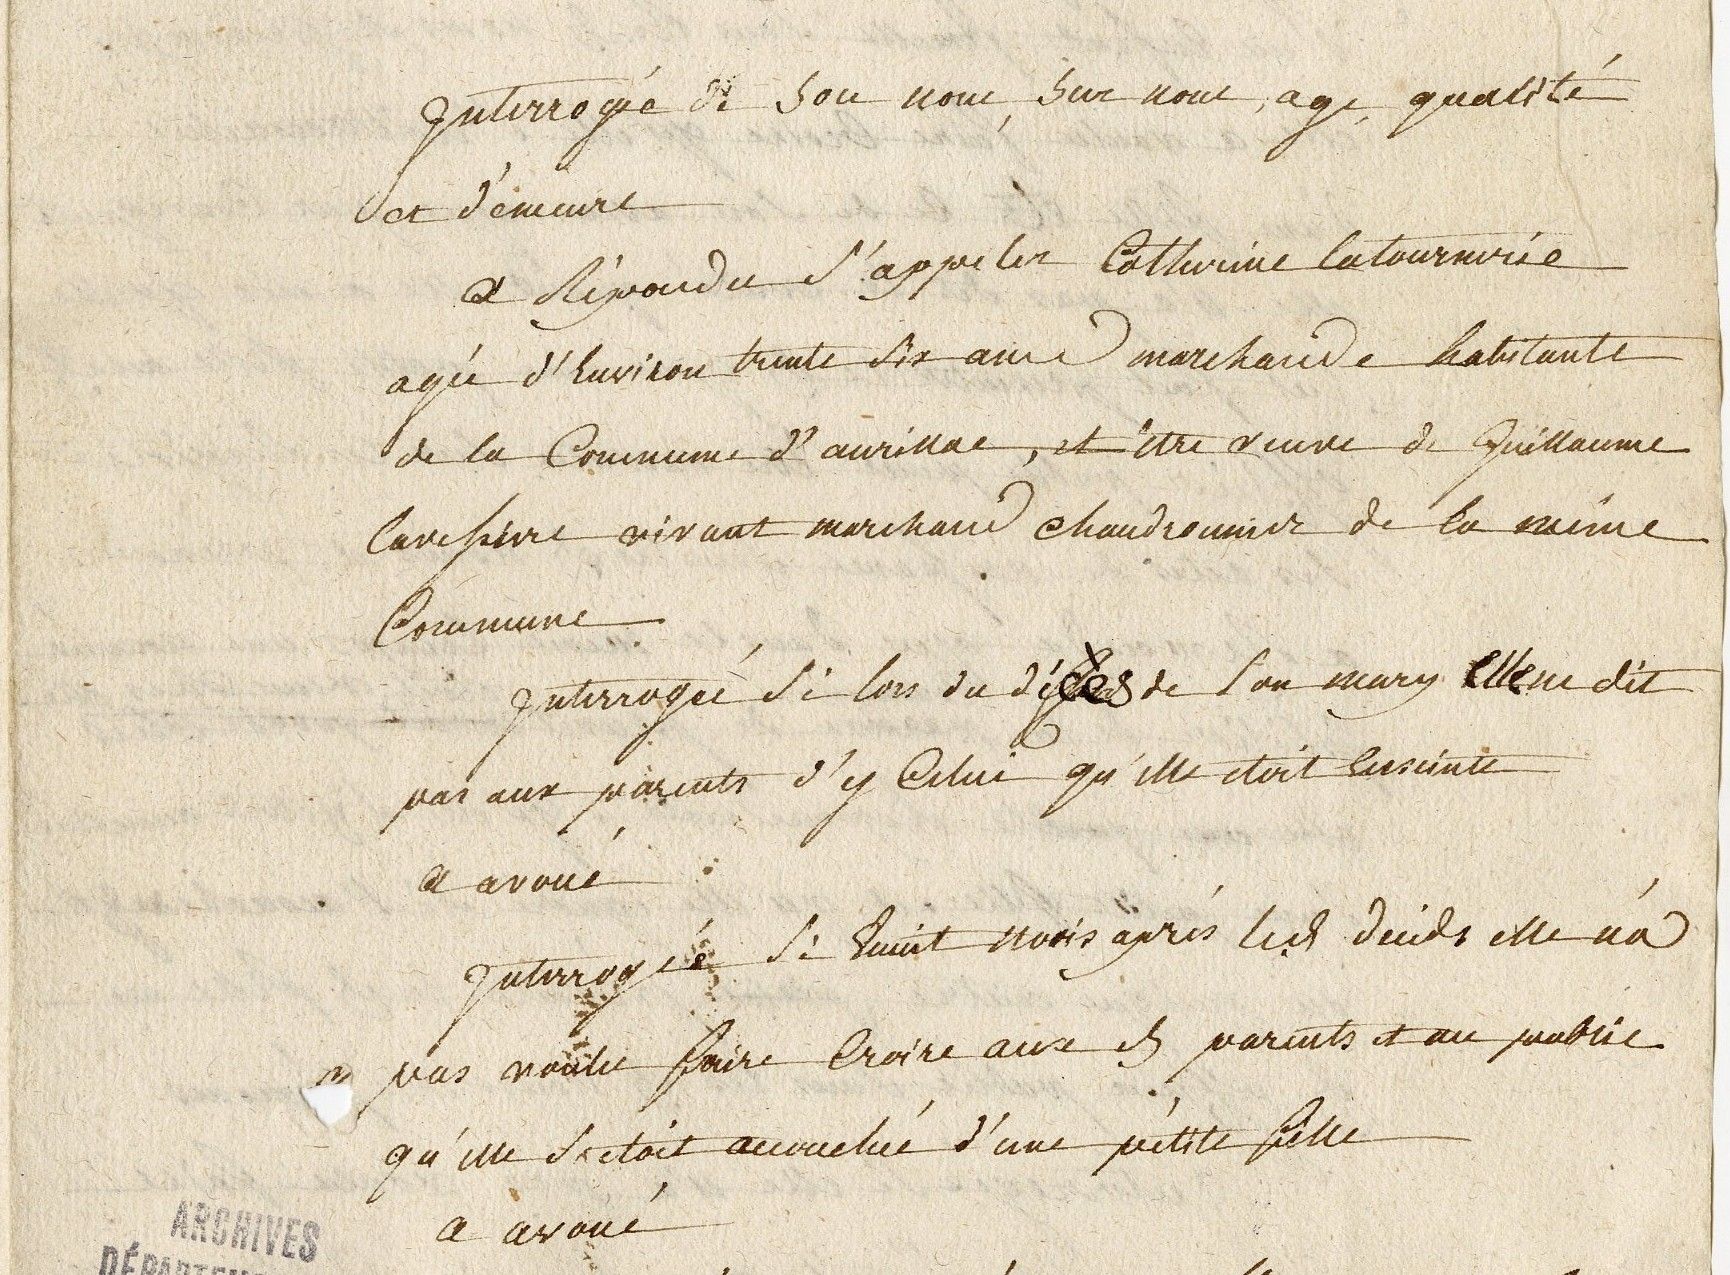 Interrogée de son nom, surnom, age, qualité
et d'emeure
a Répondu s'appeler Catherine Latourneríe
agée d'Environ trente six ans marchande habitante
de la Commune d'aurillac, et être veuve de Guillaume
vivant marchand chaudronnier de la même
Commune
Interrogée si lors du décès de son mary elle ne dit
pas aux parents d'y Celui qu'elle étoit Enceinte
a avoué
Interrogée si huit mois après led décéds elle n'a
pas voulu faire Croire aux ds parents et au public
qu'elle s'étoit accouchée d'une pétite fille
a avoué
ARCHIVES